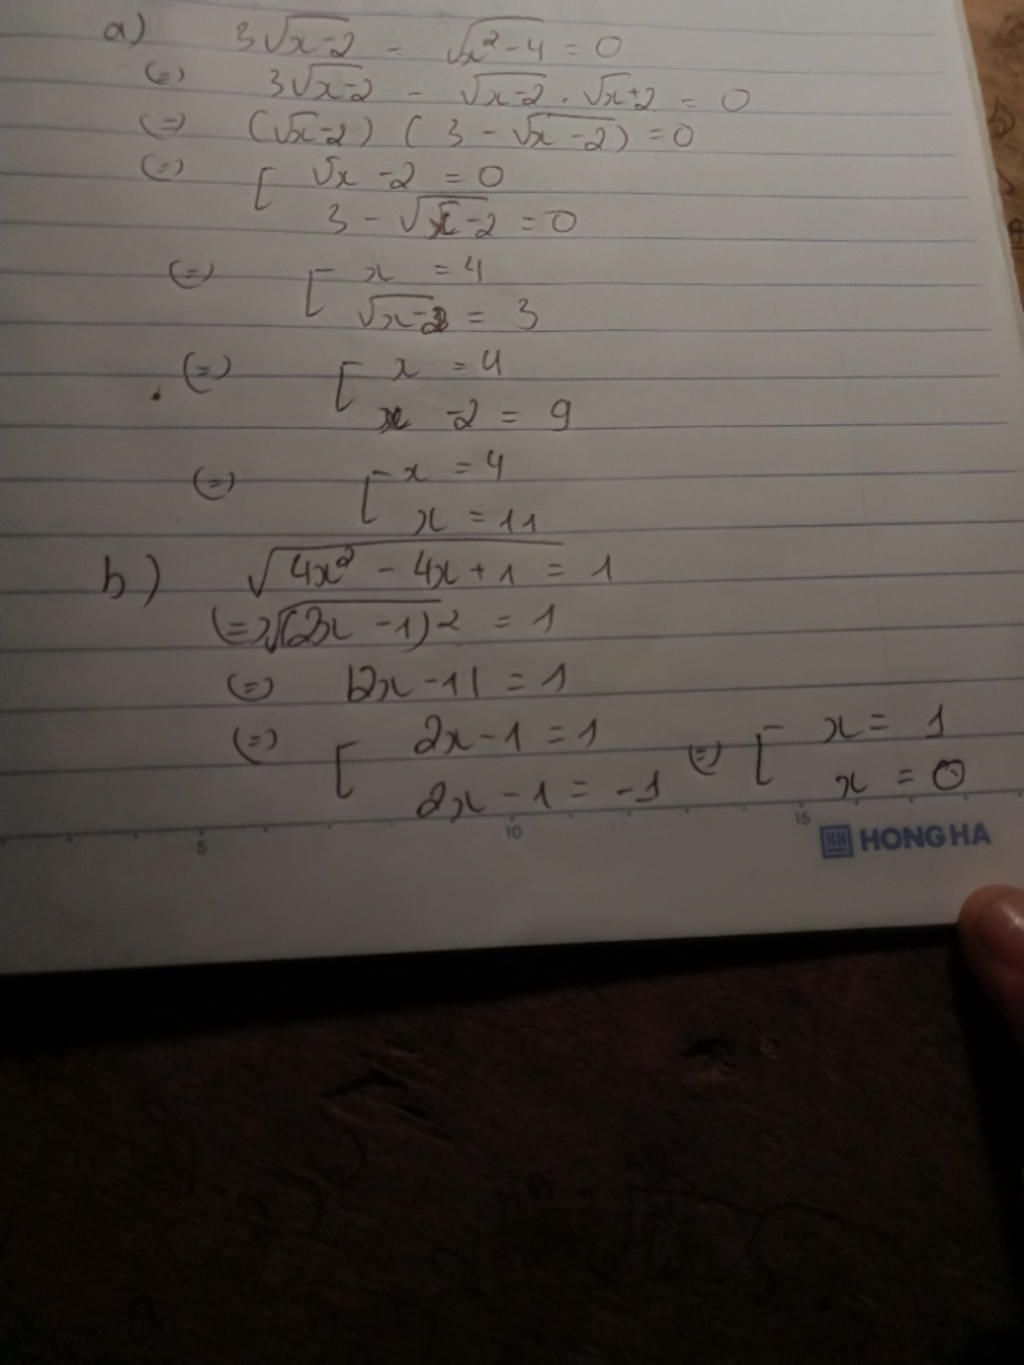 a) 3√x-2 - √x²-4 = 0
(=) 3√x-2 - √x-2 . √x+2 = 0
(=) (√x-2) (3 - √x-2) = 0
(=) [ √x -2 = 0
3 - √x-2 = 0
(=) [ x = 4
√x-2 = 3
(=) [ x = 4
x -2 = 9
(=) [ x = 4
x = 11
b) √4x² - 4x + 1 = 1
(=) √(2x -1)2 = 1
(=) |2x-1| = 1
(=) [ 2x-1 = 1 (=) [ x = 1
2x - 1 = -1 x = 0
5 10 15
HH HONG HA